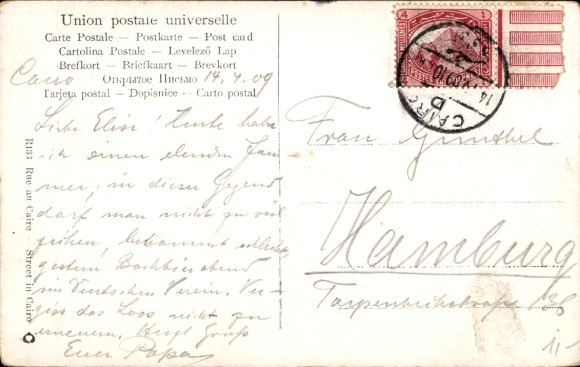 Union postale universelle
Carte Postale – Postkarte – Post card
Cartolina Postale – Levelező Lap
Brefkort – Briefkaart – Brevkort
Открытое Письмо
Tarjeta postal – Dopisnice – Carto postal
Cairo 14.4.09
Liebe Elise! Heute habe
ich einen elenden Jam-
mer, in dieser Gegend
darf man nicht zu viel
bekommt schlecht,
gestern
im Deutschen Verein. Ver-
giss das Loos nicht zu
erneuern. Herzl Gruß
Euer Papa
R133 Rue au Caire – Street in Cairo
Frau Günthel
Hamburg
Tarpenbeckstraße 38
4 MILLIEMES
CAIRO
D